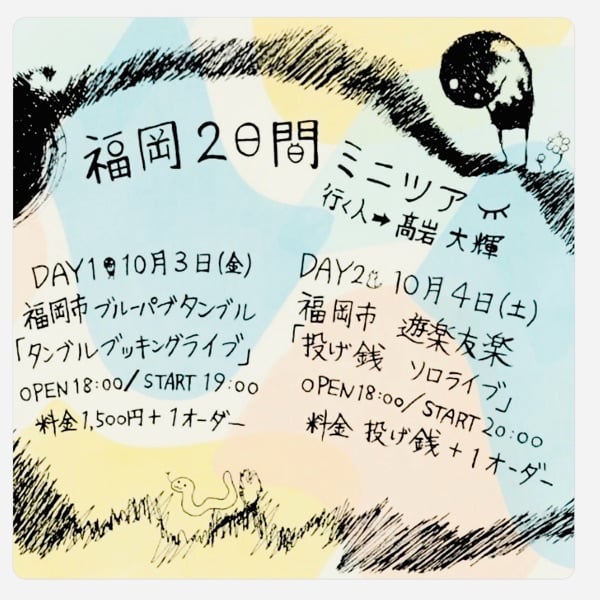 福岡2日間
ミニツアー
行く人➡髙岩 大輝
DAY1 10月3日(金)
福岡市 ブルーパブタンブル
「タンブルブッキングライブ」
OPEN 18:00/START 19:00
料金 1,500円+1オーダー
DAY2 10月4日(土)
福岡市 遊楽友楽
「投げ銭 ソロライブ」
OPEN 18:00/START 20:00
料金 投げ銭+1オーダー